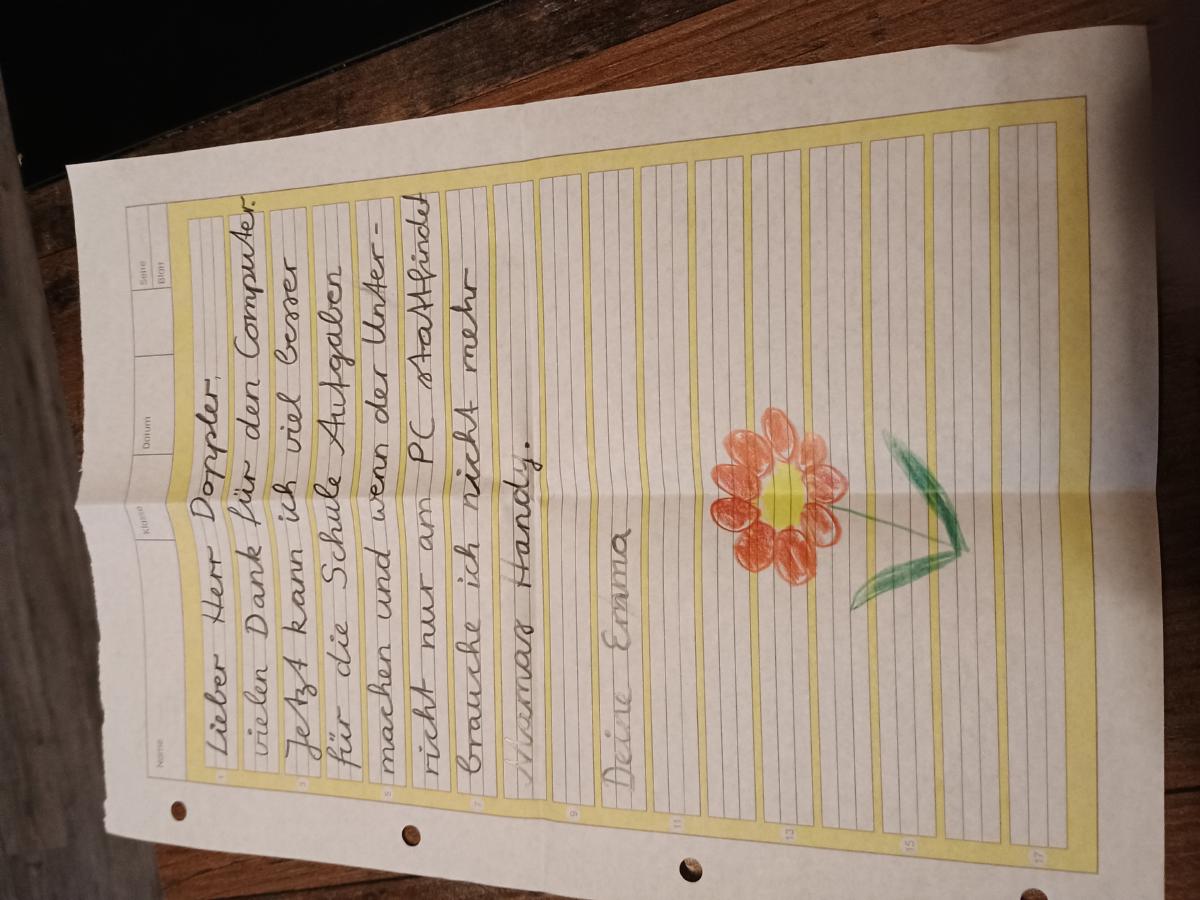 Name Klasse Datum Seite Blatt
1 Lieber Herr Doppler,
vielen Dank für den Computer.
3 Jetzt kann ich viel besser
für die Schule Aufgaben
5 machen und wenn der Unter-
richt nur am PC stattfindet
7 brauche ich nicht mehr
Mamas Handy.
9
Deine Emma
11
13
15
17